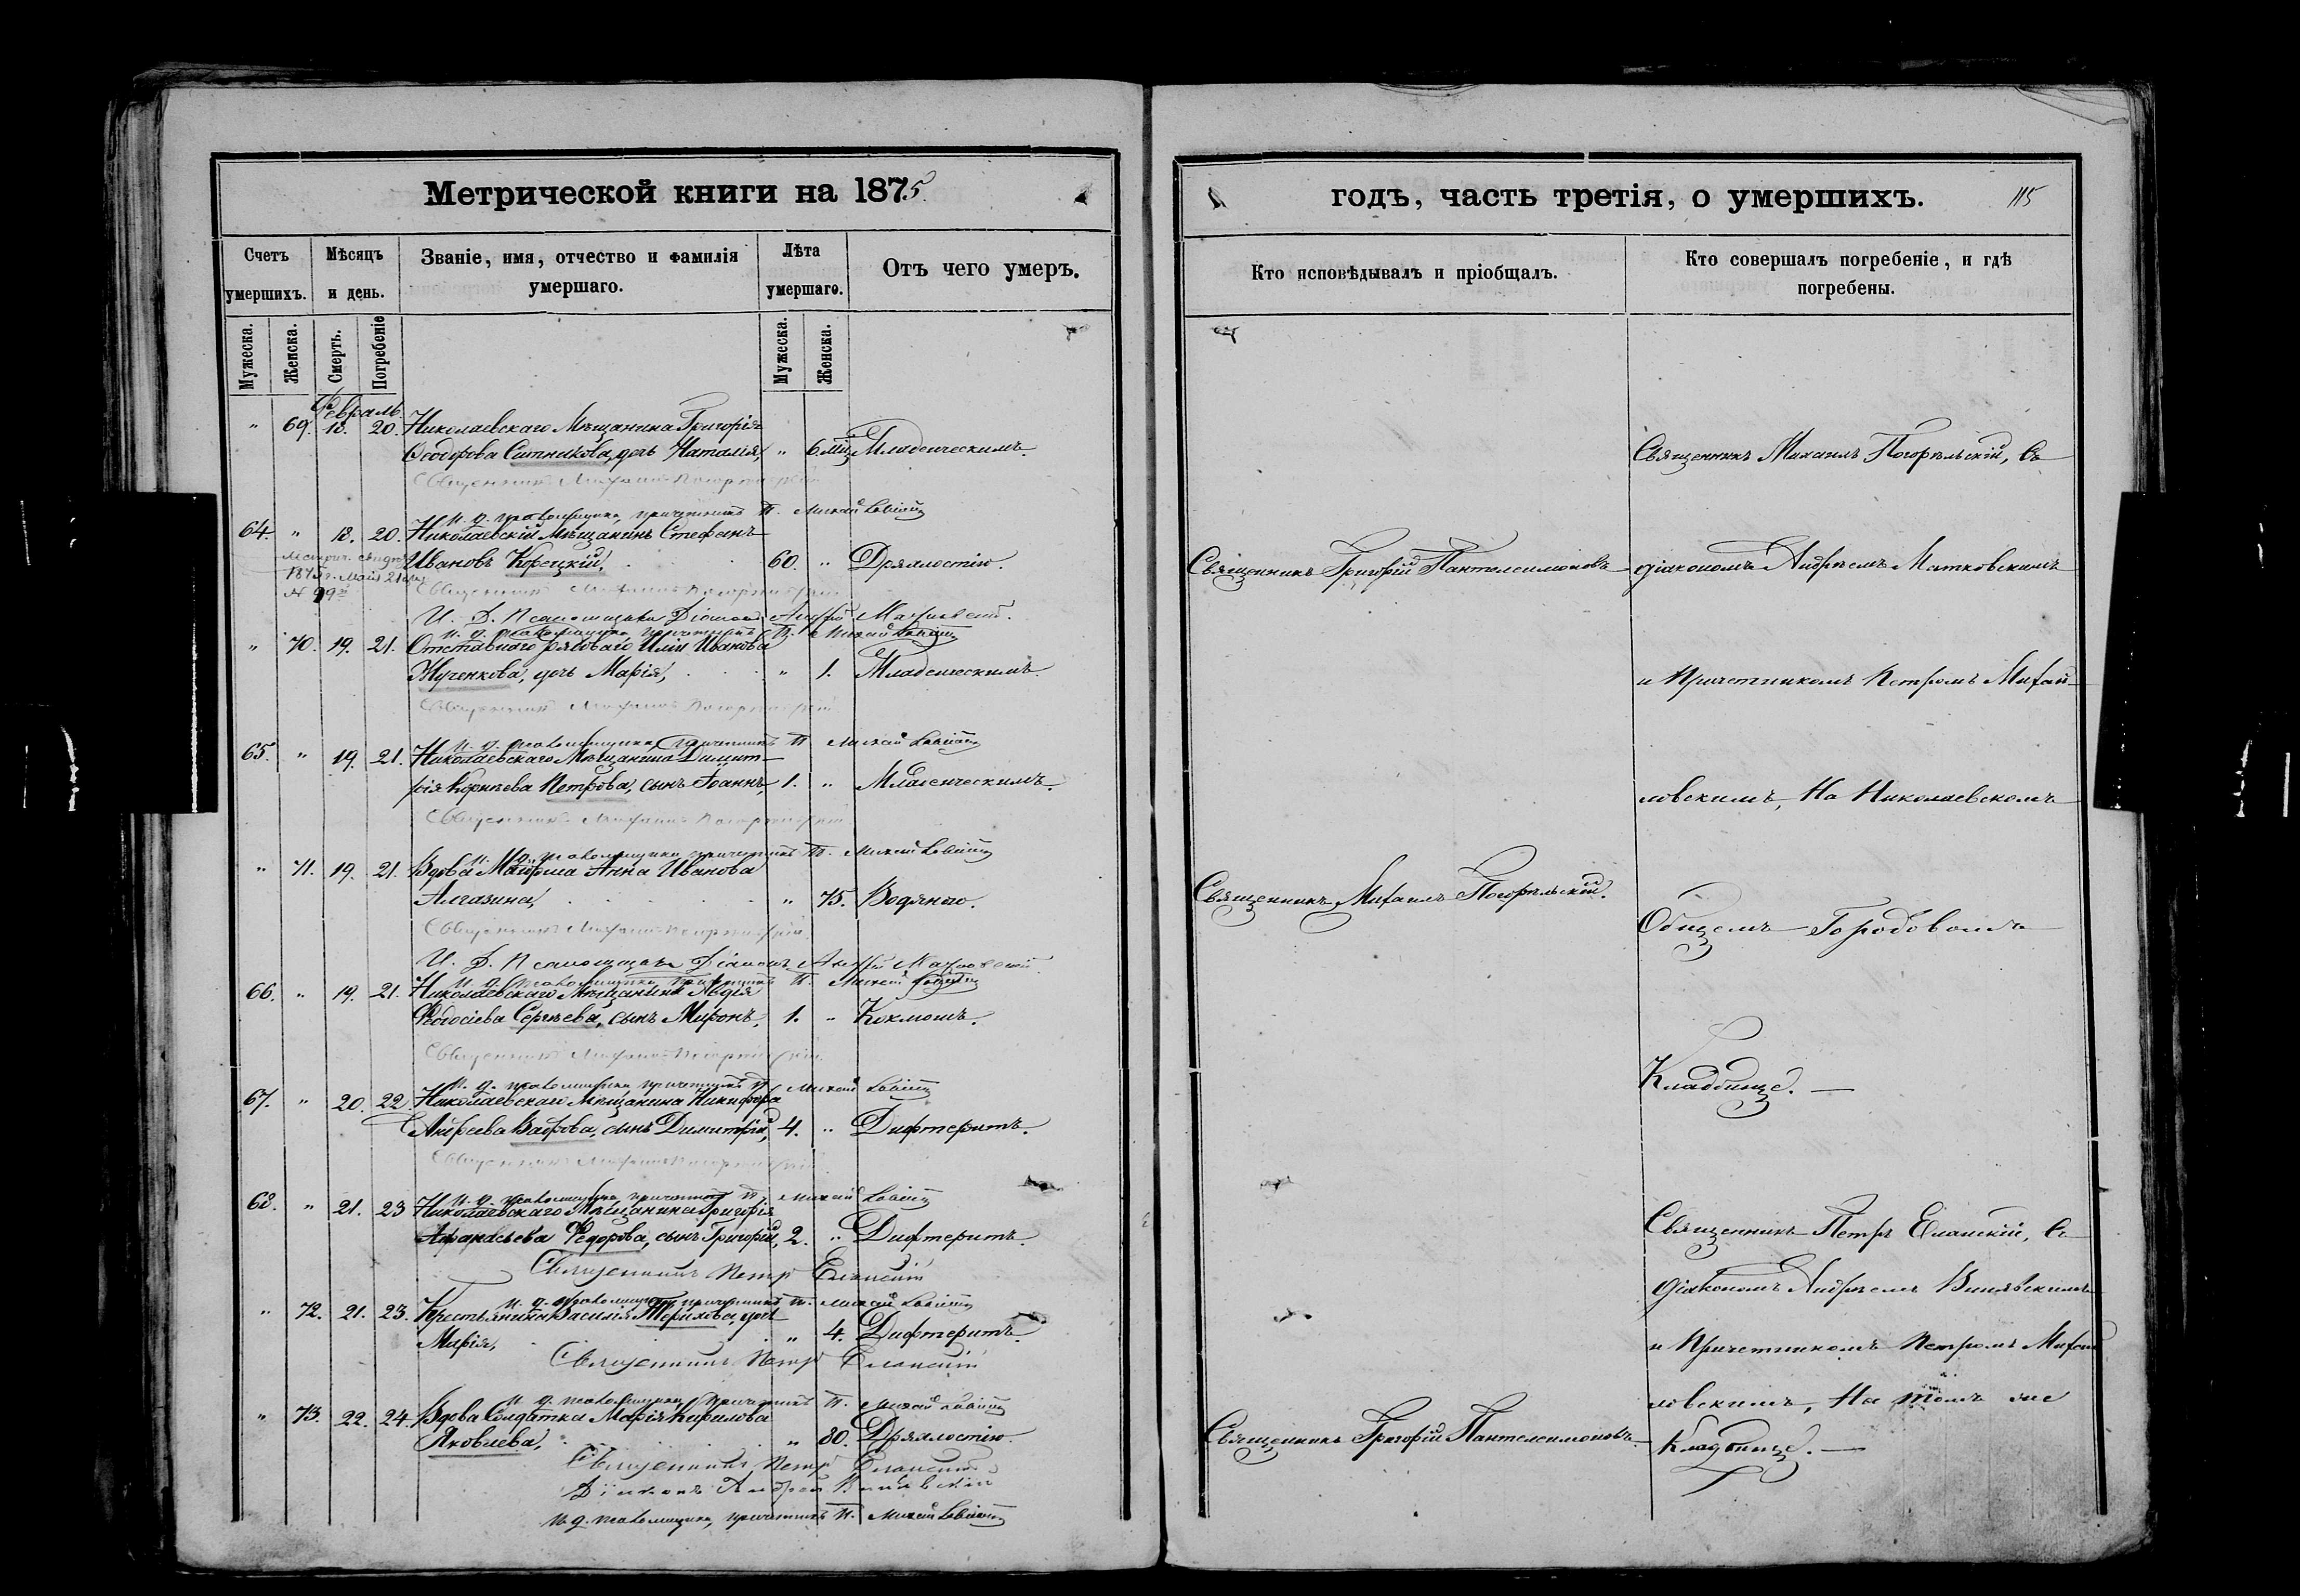 Метрической книги на 1875.
Счетъ умершихъ.
Мѣсяцъ и день.
Званіе, имя, отчество и фамилія умершаго.
Лѣта умершаго.
Отъ чего умеръ.
Мужеска.
Женска.
Смерть.
Погребеніе
Мужеска.
Женска.
Февраль.
" 69. 18. 20. Николаевскаго Мѣщанина Григорія
Ѳеодорова Ситникова, дочь Наталія, " 6 мѣц Младенческимъ.
Священникъ Михаилъ Погорѣльскій
И. д. псаломщика, причетникъ П. Михайловскій
64. " 18. 20. Николаевскій Мѣщанинъ Стефанъ
Ивановъ Корецкій, 60. " Дряхлостію.
Священникъ Михаилъ Погорѣльскій
И. Д. Псаломщика Діаконъ Андрей Матковскій.
И. д. псаломщика, причетникъ П. Михайловскій
" 70. 19. 21. Отставнаго рядоваго Иліи Иванова
Жученкова, дочь Марія, " 1. Младенческимъ.
Священникъ Михаилъ Погорѣльскій
И. д. псаломщика, причетникъ П. Михайловскій
65. " 19. 21. Николаевскаго Мѣщанина Димит-
рія Корнѣева Петрова, сынъ Іоаннъ, 1. " Младенческимъ.
Священникъ Михаилъ Погорѣльскій
И. д. псаломщика, причетникъ П. Михайловскій
" 71. 19. 21. Вдова Маіорша Анна Иванова
Алгазина, " 75. Водяною.
Священникъ Михаилъ Погорѣльскій.
И. Д. Псаломщика Діаконъ Андрей Матковскій.
И. д. псаломщика, причетникъ П. Михайловскій
66. " 19. 21. Николаевскаго Мѣщанина Авдія
Ѳеодосіева Сергѣева, сынъ Миронъ, 1. " Коклюшъ.
Священникъ Михаилъ Погорѣльскій
И. д. псаломщика, причетникъ П. Михайловскій
67. " 20. 22. Николаевскаго Мѣщанина Никифора
Андреева сынъ Димитрій, 4. " Дифтеритъ.
Священникъ Михаилъ Погорѣльскій
И. д. псаломщика, причетникъ П. Михайловскій
68. " 21. 23 Николаевскаго Мѣщанина Григорія
Афанасьева Федорова, сынъ Григорій, 2. " Дифтеритъ.
Священникъ Петръ Еланскій
И. д. псаломщика, причетникъ П. Михайловскій
" 72. 21. 23. Крестьянина Василія Терихова, дочь
Марія, " 4. Дифтеритъ.
Священникъ Петръ Еланскій
И. д. псаломщика, причетникъ П. Михайловскій
" 73. 22. 24. Вдова Солдатка Марія Кирилова
Яковлева, " 80. Дряхлостію.
Священникъ Петръ Еланскій
Діаконъ Андрей
И. д. псаломщика, причетникъ П. Михайловскій
годъ, часть третія, о умершихъ. 115
Кто исповѣдывалъ и пріобщалъ.
Кто совершалъ погребеніе, и гдѣ погребены.
Священникъ Михаилъ Погорѣльскій, съ
Священникъ Григорій Пантелеимоновъ
діакономъ Андреемъ Матковскимъ
и Причетникомъ Петромъ Михай-
ловскимъ, На Николаевскомъ
Священникъ Михаилъ Погорѣльскій.
Общемъ Городовомъ
Кладбище. —
Священникъ Петръ Еланскій, съ
діакономъ Андреемъ
и Причетникомъ Петромъ Михай
ловскимъ, На томъ же
Священникъ Григорій Пантелеимоновъ.
Кладбище. —